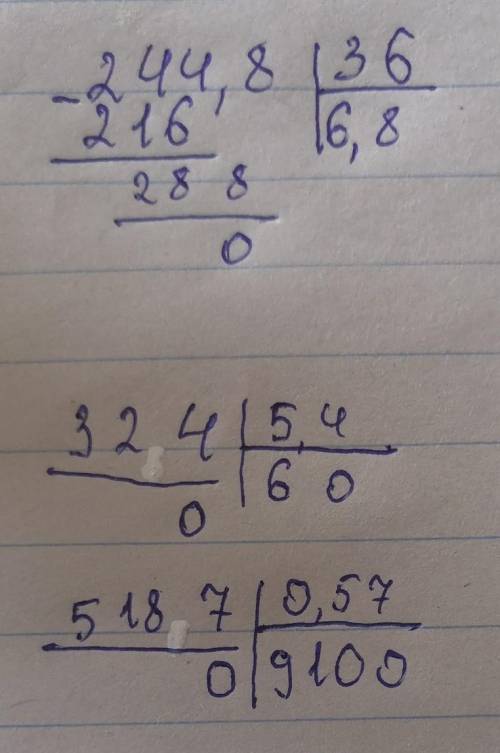 - 244,8 | 36
216 | 6,8
288
0
324 | 5,4
0 | 60
5187 | 0,57
0 | 9100